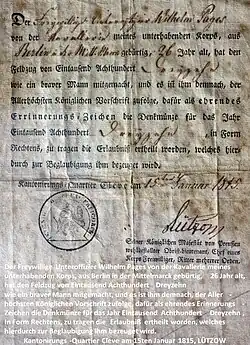 Der Freywillige Unteroffizier Wilhelm Pages
von der Kavallerie meines unterhabenden Korps, aus
Berlin in der Mittelmark gebürtig, 26 Jahr alt, hat den
Feldzug von Eintausend Achthundert Dreyzehn
wie ein braver Mann mitgemacht, und es ist ihm demnach, der
Allerhöchsten Königlichen Vorschrift zufolge, dafür als ehrendes
Erinnerungs-Zeichen die Denkmünze für das Jahr
Eintausend Achthundert Dreyzehn in Form
Rechtens, zu tragen die Erlaubniß ertheilt worden, welches hier-
durch zur Beglaubigung ihm bezeuget wird.
Kantonirungs-Quartier Cleve am 15ten Januar 1815.
Lützow
Seiner Königlichen Majestät von Preussen
Obrist-lieutenant, Chef eines
Korps Freywilliger, Ritter mehrerer Orden.
Der Freywillige Unteroffizier Wilhelm Pages von der Kavallerie meines
Unterhabenden Korps, aus Berlin in der Mittelmark gebürtig, 26 Jahr alt,
hat den Feldzug von Eintausend Achthundert Dreyzehn
wie ein braver Mann mitgemacht, und es ist ihm demnach, der Aller
höchsten Königlichen Vorschrift zufolge, dafür als ehrendes Erinnrungs
Zeichen die Denkmünze für das Jahr Eintausend Achthundert Dreyzehn
in Form Rechtens, zu tragen die Erlaubniß ertheilt worden, welches
hierdurch zur Beglaubigung ihm bezeuget wird.
Kantonirungs -Quartier Cleve am 15ten Januar 1815, LÜTZOW